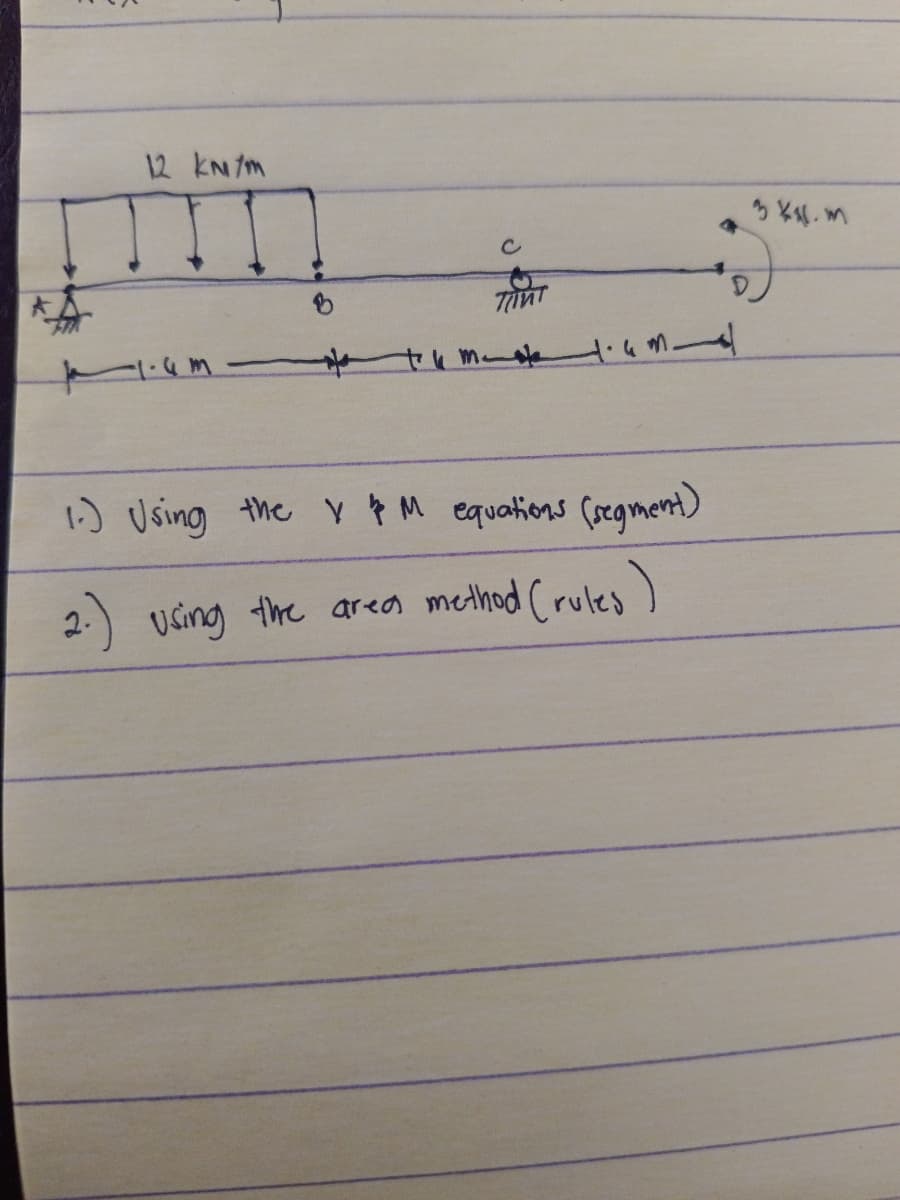 12 kN/m
3 kN.m
C
A
B
D
1.) Using the V & M equations (segment)
2.) using the area method (rules)